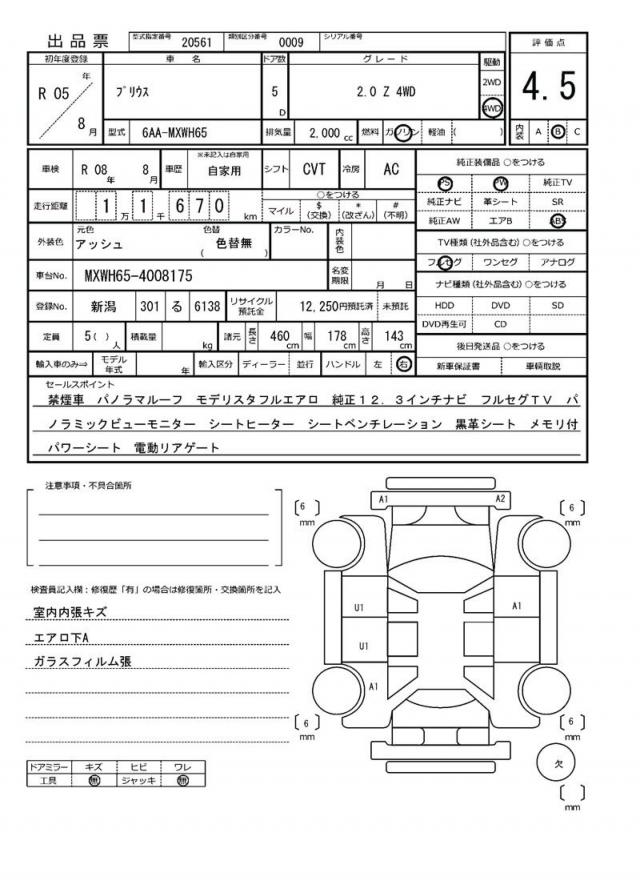 出品票 型式指定番号 20561 類別区分番号 0009 シリアル番号
評価点
4.5
内装 A B C
初年度登録 車名 ドア数 グレード 駆動
R 05 年 8 月 プリウス 5 D 2.0 Z 4WD 2WD 4WD
型式 6AA-MXWH65 排気量 2,000 cc 燃料 ガソリン 軽油 ( )
車検 R 08 年 8 月 車歴 ※未記入は自家用 自家用 シフト CVT 冷房 AC
走行距離 1 万 1 千 6 7 0 km ○をつける
マイル $(交換) *(改ざん) #(不明)
外装色 元色 アッシュ 色替 ( 色替無 ) カラーNo. 内装色
車台No. MXWH65-4008175 名変期限 月 日
登録No. 新潟 301 る 6138 リサイクル預託金 12,250円預託済 未預託
定員 5( ) 人 積載量 kg 諸元 長さ 460 cm 幅 178 cm 高さ 143 cm
輸入車のみ⇒ モデル年式 年 輸入区分 ディーラー 並行 ハンドル 左 右
純正装備品 ○をつける
PS PW 純正TV
純正ナビ 革シート SR
純正AW エアB ABS
TV種類 (社外品含む) ○をつける
フルセグ ワンセグ アナログ
ナビ種類 (社外品含む) ○をつける
HDD DVD SD
DVD再生可 CD
後日発送品 ○をつける
新車保証書 車輌取説
セールスポイント
禁煙車 パノラマルーフ モデリスタフルエアロ 純正12.3インチナビ フルセグTV パ
ノラミックビューモニター シートヒーター シートベンチレーション 黒革シート メモリ付
パワーシート 電動リアゲート
注意事項・不具合箇所
検査員記入欄：修復歴「有」の場合は修復箇所・交換箇所を記入
室内内張キズ
エアロ下A
ガラスフィルム張
ドアミラー キズ ヒビ ワレ
工具 無 ジャッキ 無
A1 A2
[6] mm [6] mm
U1 A1
U1
A1
[6] mm [6] mm
欠
[ ] mm